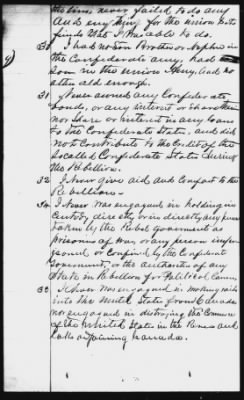 the time, never failed to do any
and every thing for the union cause
friends that I was able to do.
30 I had no Son Brother or Nephew in
the Confederate army, had
Son in the union Army, and no
other old enough.
31 I Never owned any Confederate
bonds, or any interest or share therein
nor share or interest in any loan
to the Confederate States, and did
not contribute to the Credit of the
So called Confederate States during
the Rebellion.
32 I Never Give aid and Comfort to the
Rebellion.
34 I Never was engaged in holding in
Custody directly or indirectly any person
taken by the Rebel government as
prisoners of war, or any person
or Confined by the Confederate
Government, or the authorities of any
State in Rebellion for Political Causes
35 I Never was engaged in making raids
into the United States from Canada
nor engaged in destroying the Commerce
of the United States in the Rivers and
Lakes adjoining Canada.